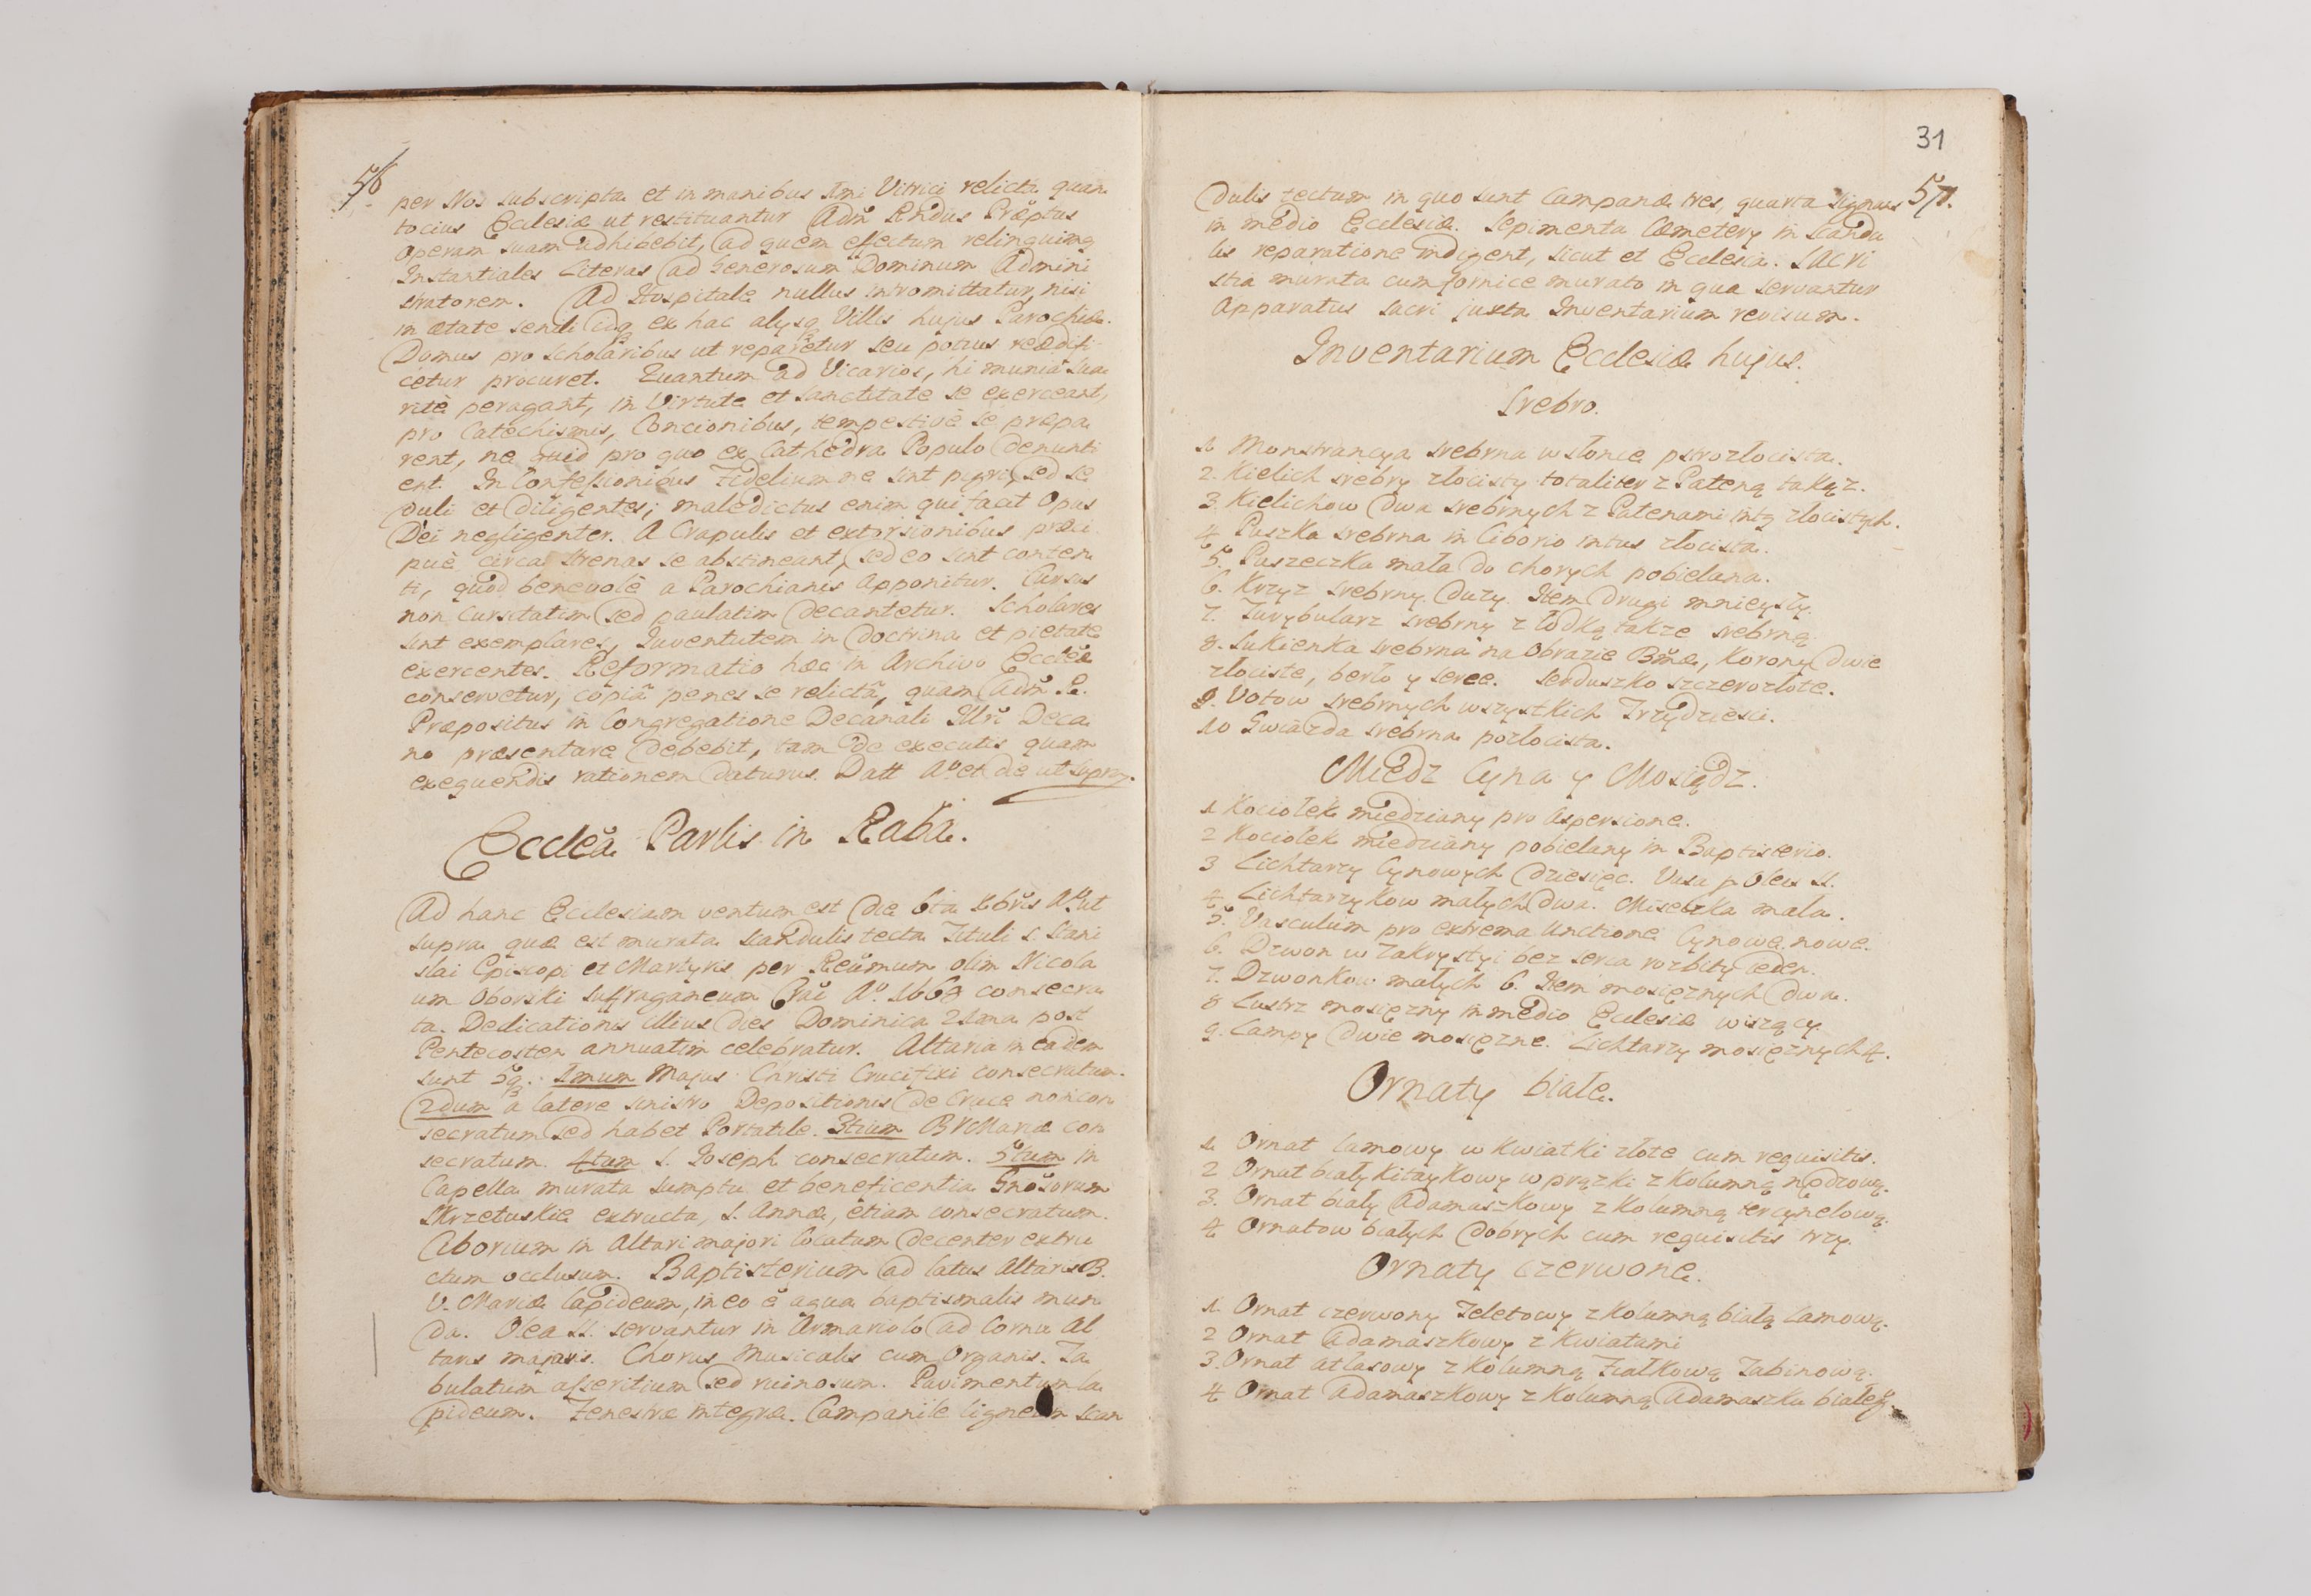 56
per Nos subscripta et in manibus 1mi Vitrici relicta quan
tocius Ecclesiæ ut restituantur Adm̃ Rndus Præptus
operam suam adhibebit, ad quem effectum relinquimq
Instantiales Literas ad Generosum Dominum Admini
stratorem. Ad Hospitale nullus intromittatur, nisi
in ætate senili idq ex hac alysq Villis hujus Parochiæ.
Domus pro Scholaribus ut reparetur seu potius reædifi
cetur procuret. Quantum ad Vicarios, hi munia sua
ritè peragant, in Virtute et Sanctitate se exerceant,
pro Catechismis, Concionibus, tempestivè se præpa
rent, ne quid pro quo ex Cathedra Populo denunti
ent. In Confessionibus Fidelium ne sint pigri, sed se
duli et diligentes; maledictus enim qui facit Opus
Dei negligenter. A Crapulis et extorsionibus præci
puè circa Strenas se abstineant, sed eo sint conten
ti, quod benevolè a Parochianis apponitur. Cursus
non cursitatim sed paulatim decantetur. Scholares
sint exemplares, Juventutem in doctrina et pietate
exercentes. Reformatio hæc in Archivo Eccl̃æ
conservetur, copiã penes se relictã, quam Adm̃ R.
Præpositus in Congregatione Decanali Illri Deca
no præsentare debebit, tam de executis quam
exequendis rationem daturus. Datt Aº et die ut supra.
Ecclẽa Parlis in Raba.
Ad hanc Ecclesiam ventum est die 6ta Xbris Aº ut
supra quæ est murata scandulis tecta Tituli S. Stani
slai Episcopi et Martyris per Reũmum olim Nicola
um Oborski suffraganeum Crac̃ Aº. 1663 consecra
ta. Dedicationis illius dies Dominica 21ma post
Pentecosten annuatim celebratur. Altaria in eadem
sunt 5q. 1mum Majus Christi Crucifixi consecratum.
2dum à latere sinistro Depositionis de Cruce non con
secratum sed habet Portatile. 3tium BVMariæ con
secratum. 4tum S. Joseph consecratum. 5tum in
Capella murata sumptu et beneficentia Gnõsorum
Skrzetuskie extructa, S. Annæ, etiam consecratum.
Ciborium in Altari majori locatum decenter extru
ctum occlusum. Baptisterium ad latus Altaris B.
V. Mariæ lapideum, in eo ẽ aqua baptismalis mun
da. Olea SS. servantur in Armariolo ad Cornu Al
taris majoris. Chorus Musicalis cum Organis. Ta
bulatum asseritium sed ruinosum. Pavimentum la
pideum. Fenestræ integræ. Campanile ligneum scan
31
57.
dulis tectum in quo sunt Campanæ tres, quarta Signans
in medio Ecclesiæ. Sepimenta Cæmetery in scandu
lis reparatione indigent, sicut et Ecclesia. Sacri
stia murata cum fornice murato in qua servantur
Apparatus sacri juxta Inventarium revisum.
Inventarium Ecclesiæ hujus.
Srebro.
1. Monstrancya srebrna w słonce pozrozłocista.
2. Kielich srebry złocisty totaliter z Pateną takąz.
3. Kielichow dwa srebrnych z Patenami intq złocistych.
4. Puszka srebrna in Ciborio intus złocista.
5. Puszeczka mała do chorych pobielana.
6. Krzyz srebrny duzy. Item drugi mnieyszy.
7. Turybularz srebrny z łodką takze srebrną.
8. Sukienka srebrna na Obrazie Bm̃æ, korony dwie
złociste, berło y serce. Serduszko szczerozłote.
9. Votow srebrnych wszystkich Trzydziesci.
10 Gwiazda srebrna pozłocista.
Miedz Cyna y Mosiądz.
1. Kociołek miedziany pro Aspersione.
2 Kociołek miedziany pobielany in Baptisterio.
3 Lichtarzy Cynowych dziesięc. Vasa p Oleis SS.
4 Lichtarzykow małych dwa. Miseczka mała.
5. Vasculum pro extrema Unctione Cynowe nowe.
6. Dzwon w Zakrystyi bez serca rozbity ieden.
7. Dzwonkow małych 6. Item mosięznych dwa.
8 Lustr mosięzny in medio Ecclesiæ wiszący.
9. Lampy dwie mosięzne. Lichtarzy mosięznych 4.
Ornaty białe.
1. Ornat lamowy w kwiatki złote cum requisitis.
2 Ornat biały kitaykowy w prązki z kolumną
3. Ornat biały Adamaszkowy z kolumną tercynelową.
4 Ornatow białych dobrych cum requisitis trzy.
Ornaty czerwone.
1. Ornat czerwony Teletowy z kolumną białą lamową.
2 Ornat Adamaszkowy z kwiatami
3. Ornat atlasowy z kolumną fiałkową Tabinową.
4 Ornat Adamaszkowy z kolumną Adamaszku białeg.